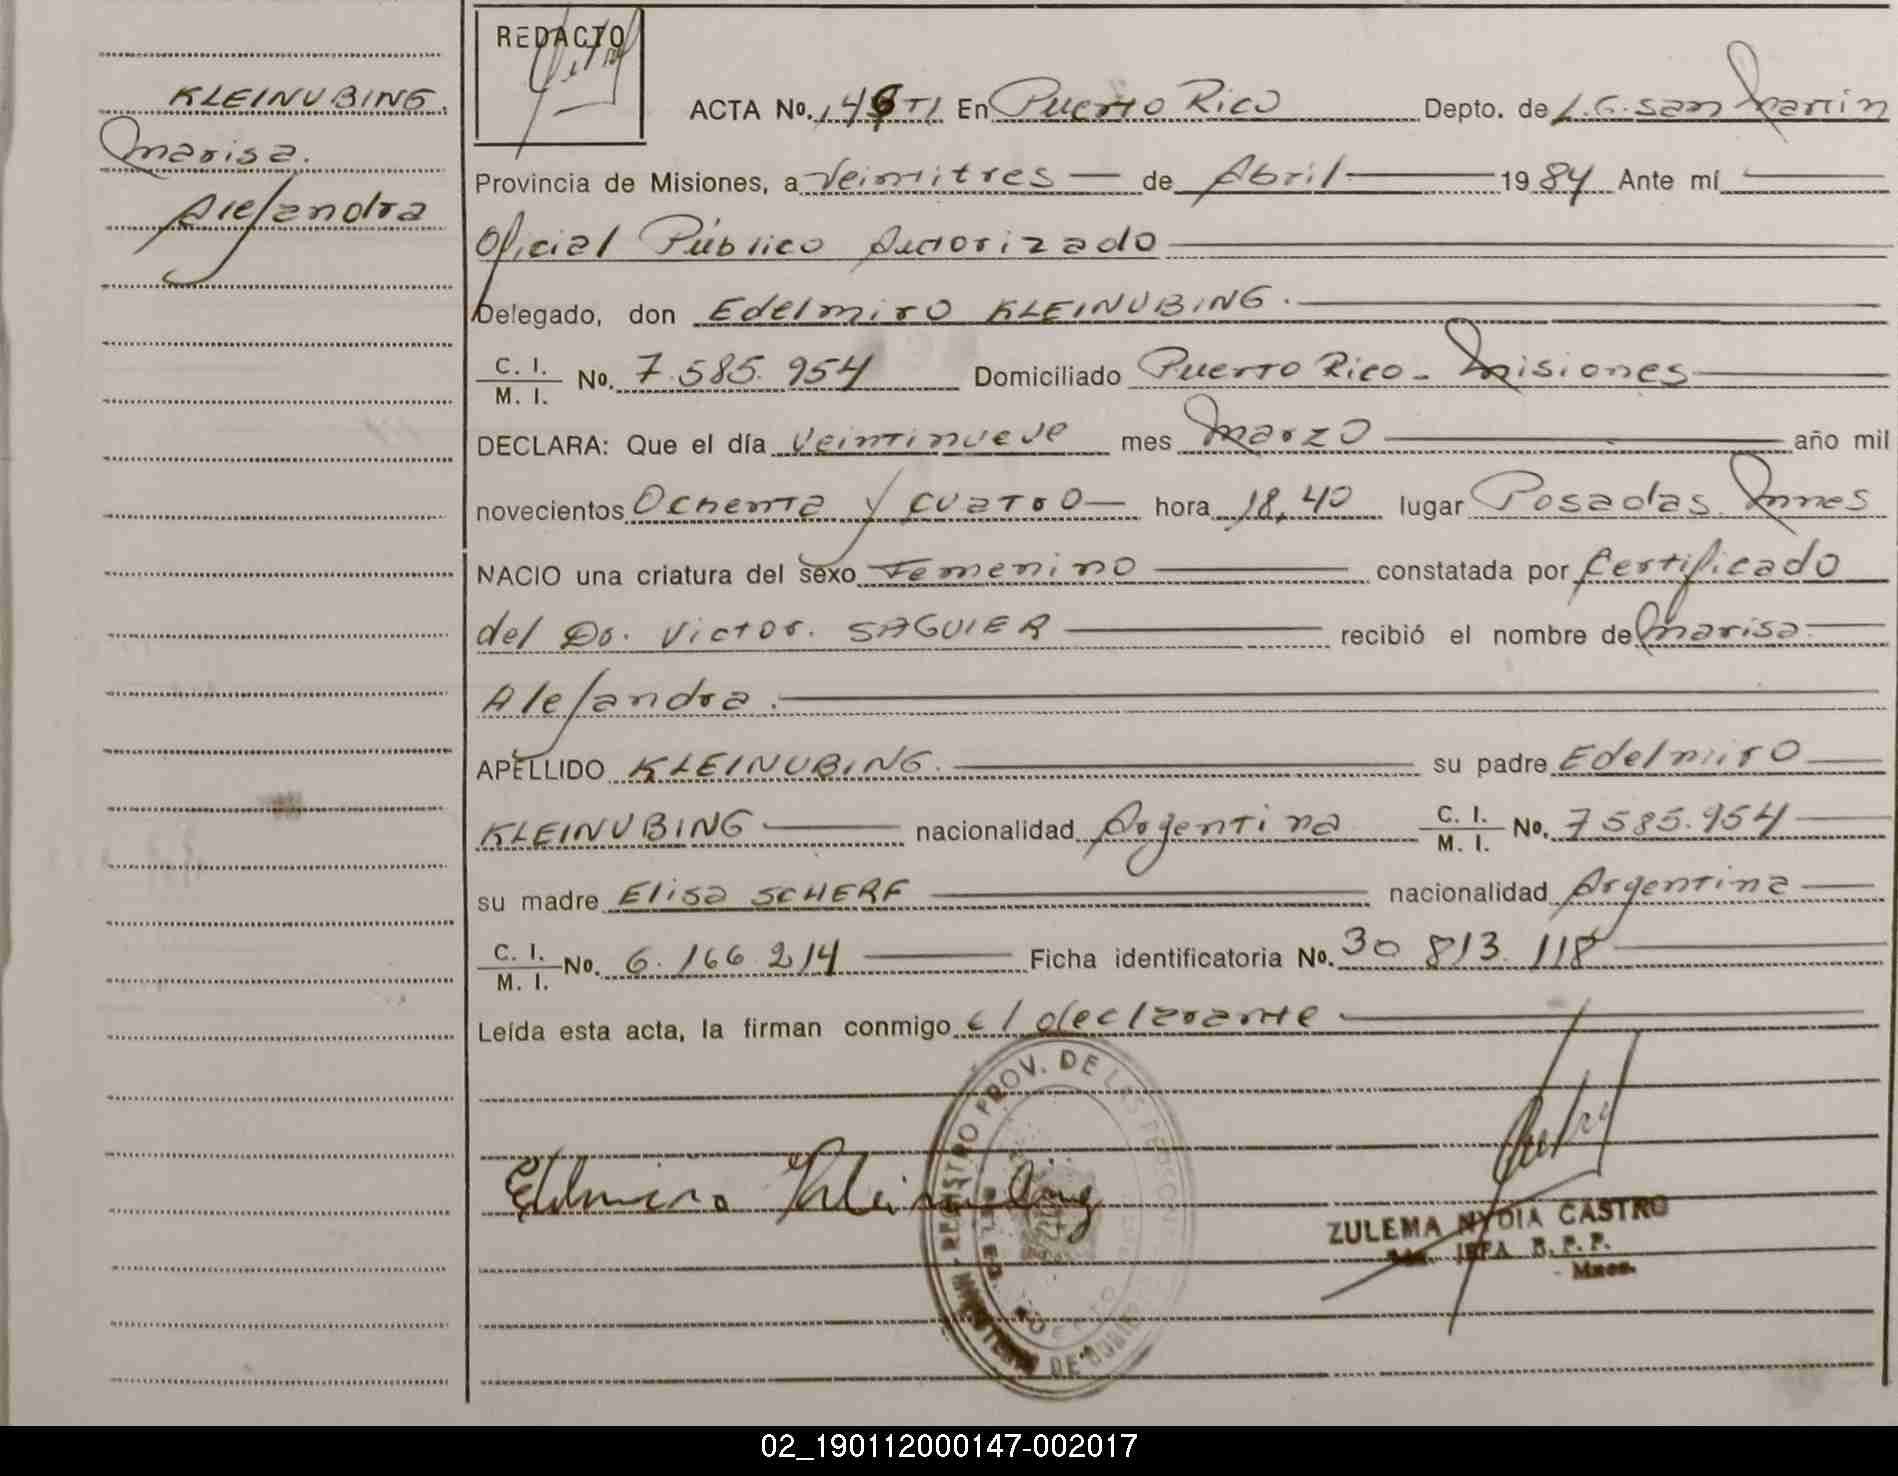 REDACTO
KLEINUBING.
Marisa.
Alejandra
ACTA No. 146 TI En Puerto Rico Depto. de L.G. San Martin
Provincia de Misiones, a Veintitres de Abril 1984 Ante mí
Oficial Público Autorizado
Delegado, don Edelmiro KLEINUBING.
C. I. / M. I. No. 7.585.954 Domiciliado Puerto Rico - Misiones
DECLARA: Que el día veintinueve mes Marzo año mil
novecientos Ochenta y cuatro hora 18,40 lugar Posadas. Mnes
NACIO una criatura del sexo Femenino constatada por Certificado
del Dr. Victor. SAGUIER recibió el nombre de Marisa
Alejandra.
APELLIDO KLEINUBING. su padre Edelmiro
KLEINUBING nacionalidad Argentina C. I. / M. I. No. 7585.954
su madre Elisa SCHERF nacionalidad Argentina
C. I. / M. I. No. 6.166.214 Ficha identificatoria No. 30 813. 118
Leída esta acta, la firman conmigo el declarante
REGISTRO PROV. DE LAS
MINISTERIO DE GOBIERNO
Edelmiro Kleinubing
ZULEMA NYDIA CASTRO
JEFA R. P. P.
Mnes.
02_190112000147-002017